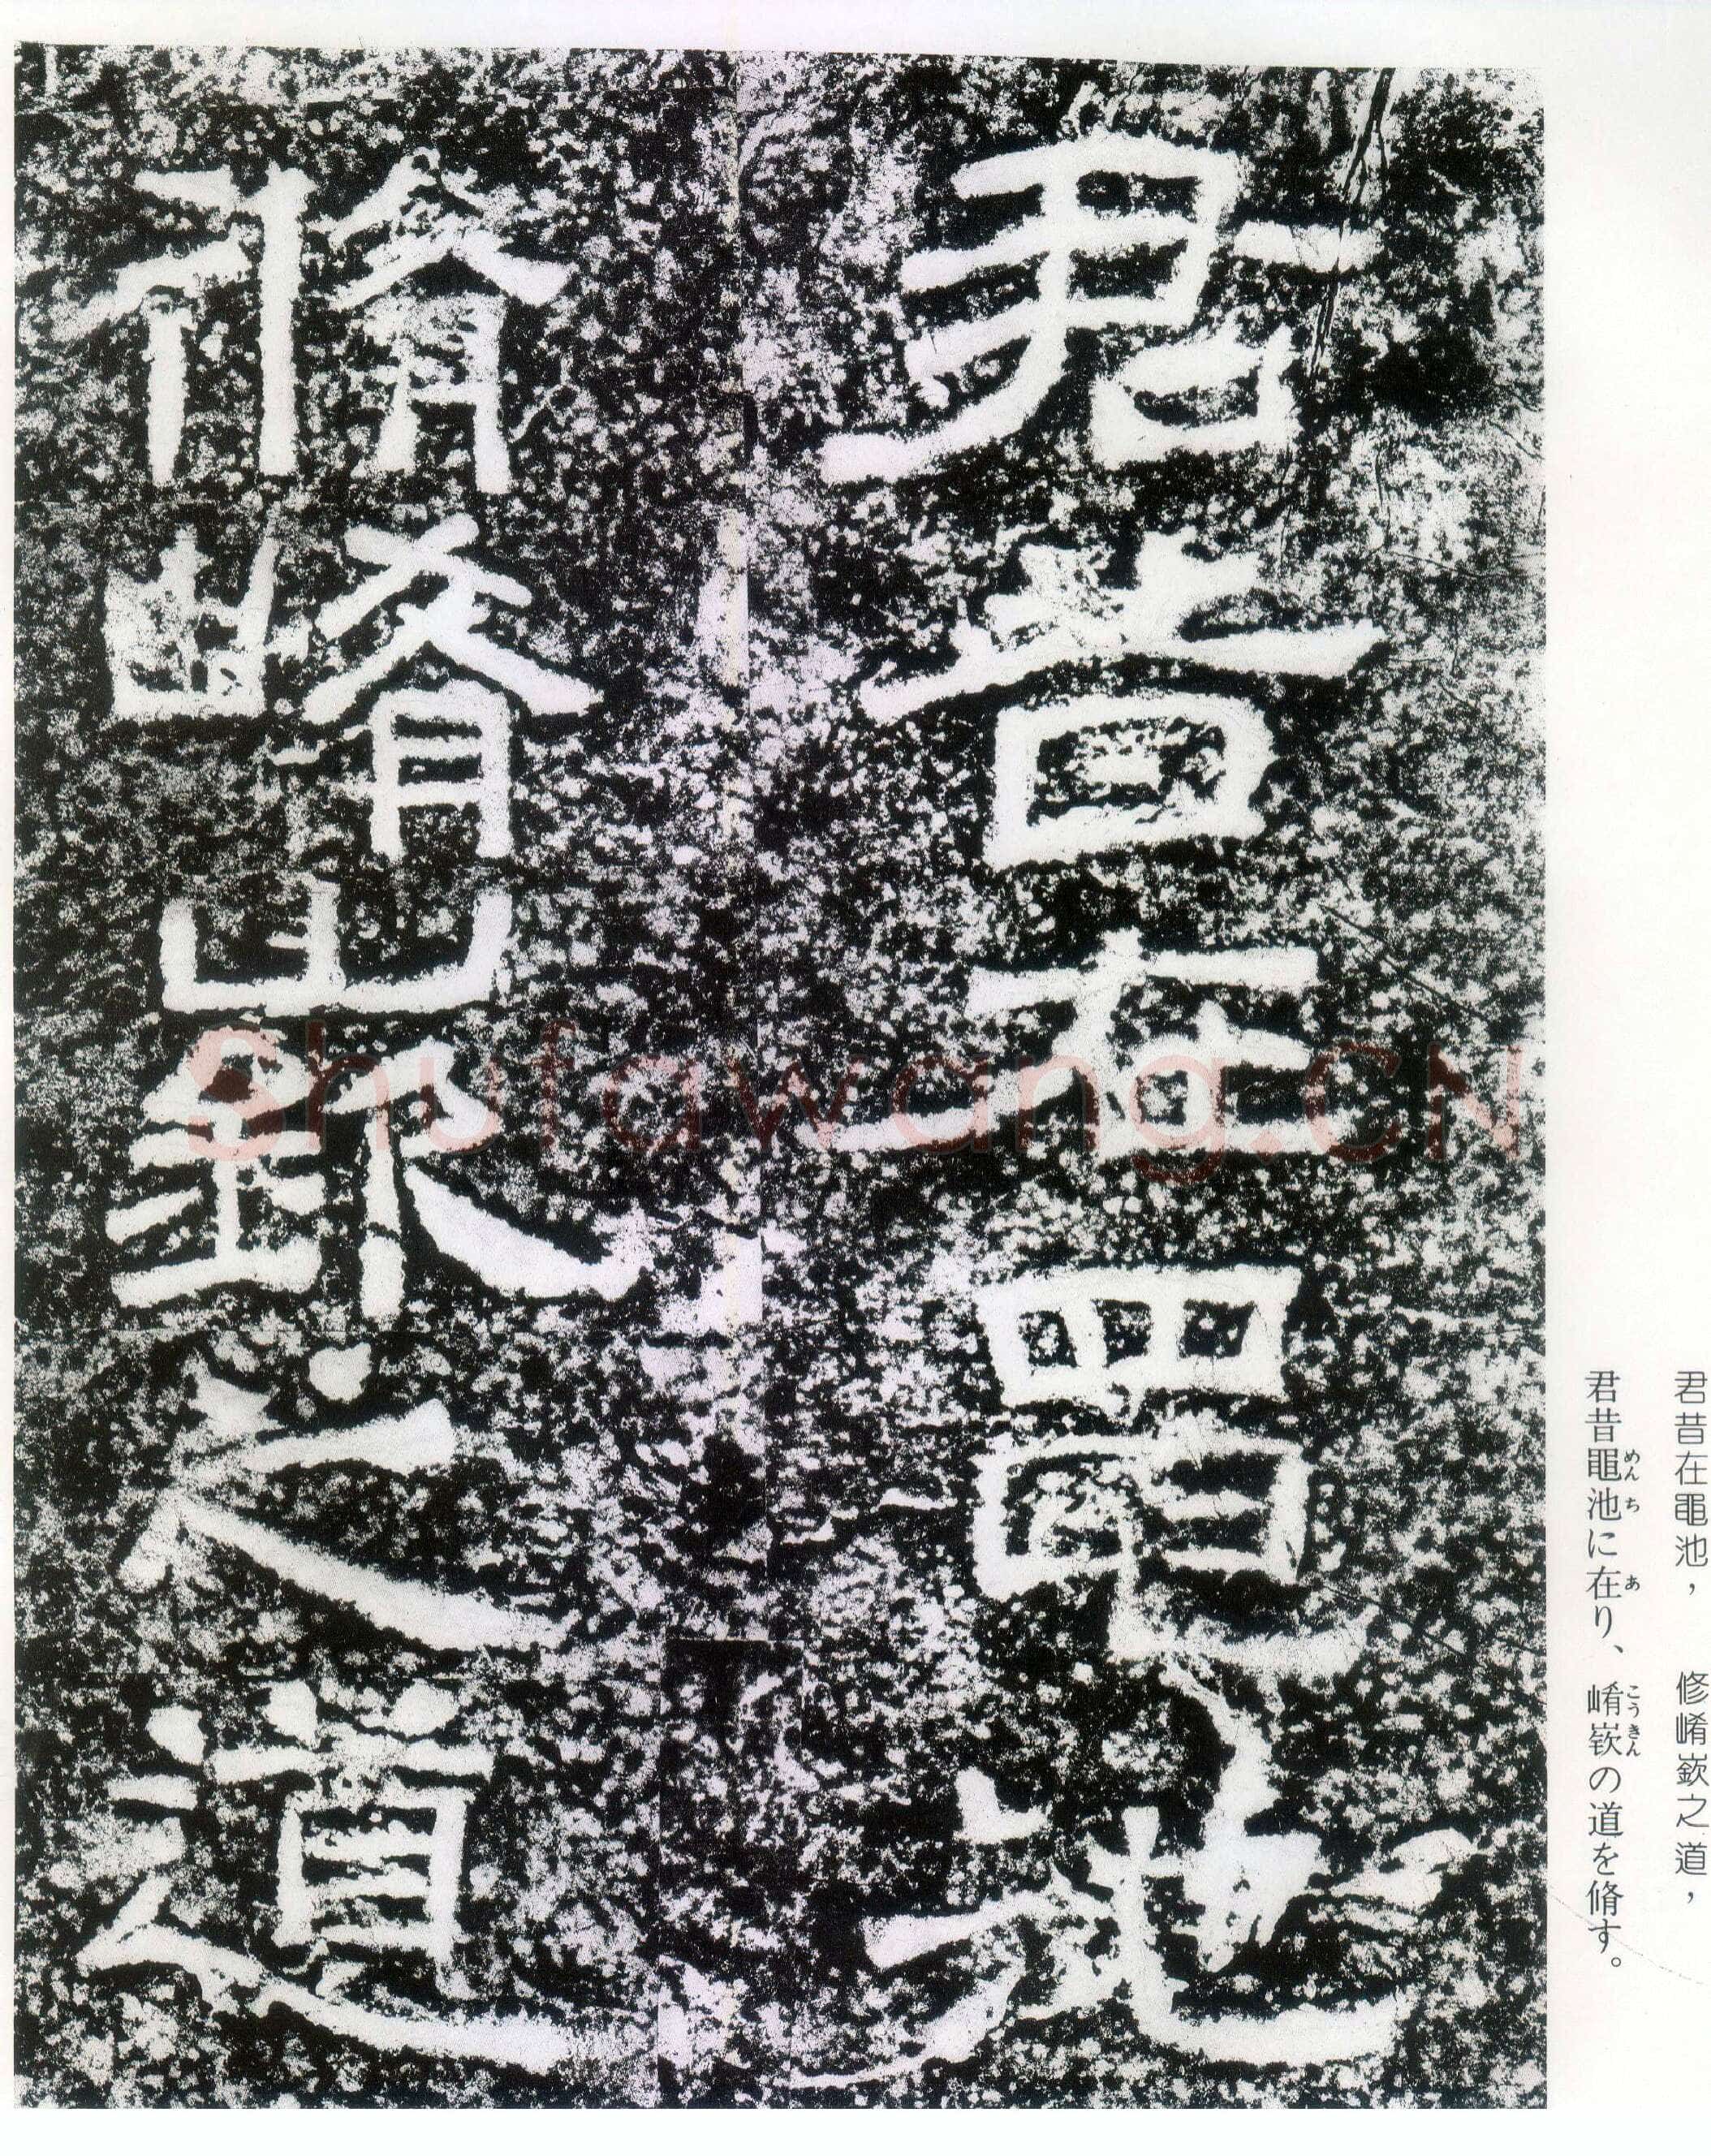 君昔在黽池，　修崤嶔之道，
君昔黽池に在り、崤嶔の道を脩す。
めんち　あ　こうきん
君昔在黽池
脩崤嶔之道
Shufawang.CN